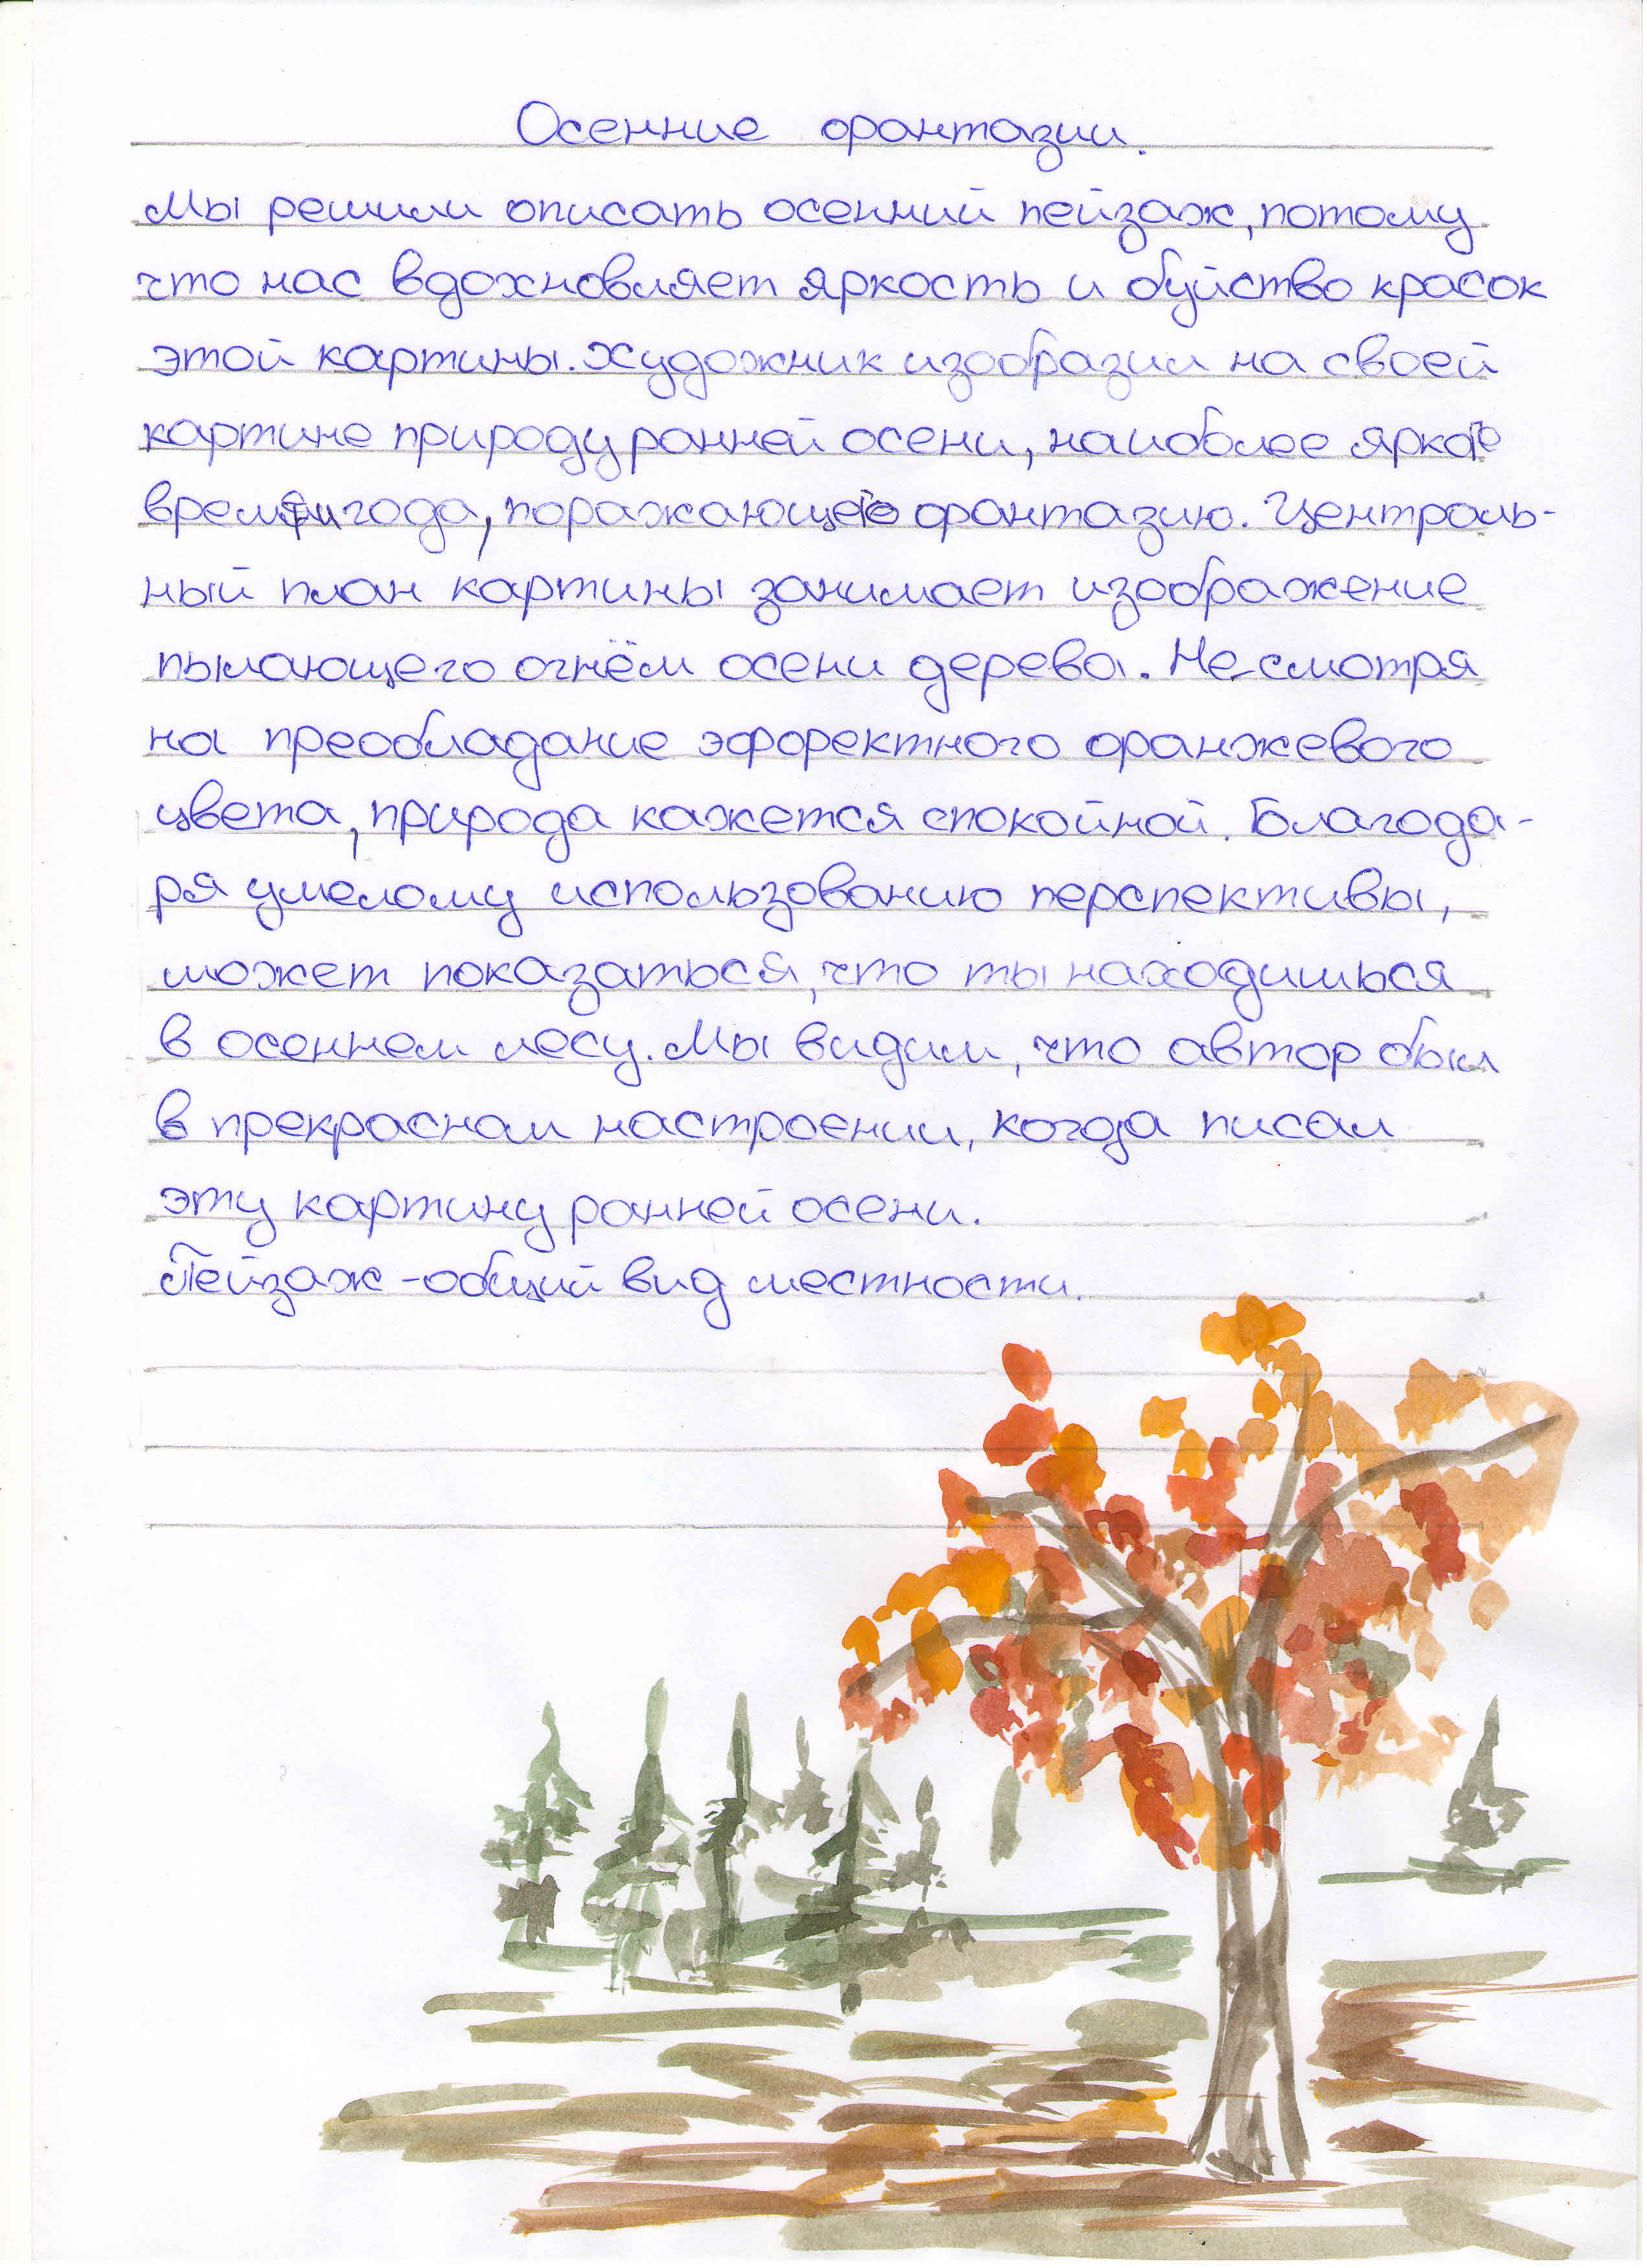 Осенние фантазии.
Мы решили описать осенний пейзаж, потому
что нас вдохновляет яркость и буйство красок
этой картины. Художник изобразил на своей
картине природу ранней осени, наиболее яркое
время года, поражающего фантазию. Централь-
ный план картины занимает изображение
пылающего огнём осени дерева. Не смотря
на преобладание эффектного оранжевого
цвета, природа кажется спокойной. Благода-
ря умелому использованию перспективы,
может показаться, что ты находишься
в осеннем лесу. Мы видим, что автор был
в прекрасном настроении, когда писал
эту картину ранней осени.
Пейзаж - общий вид местности.